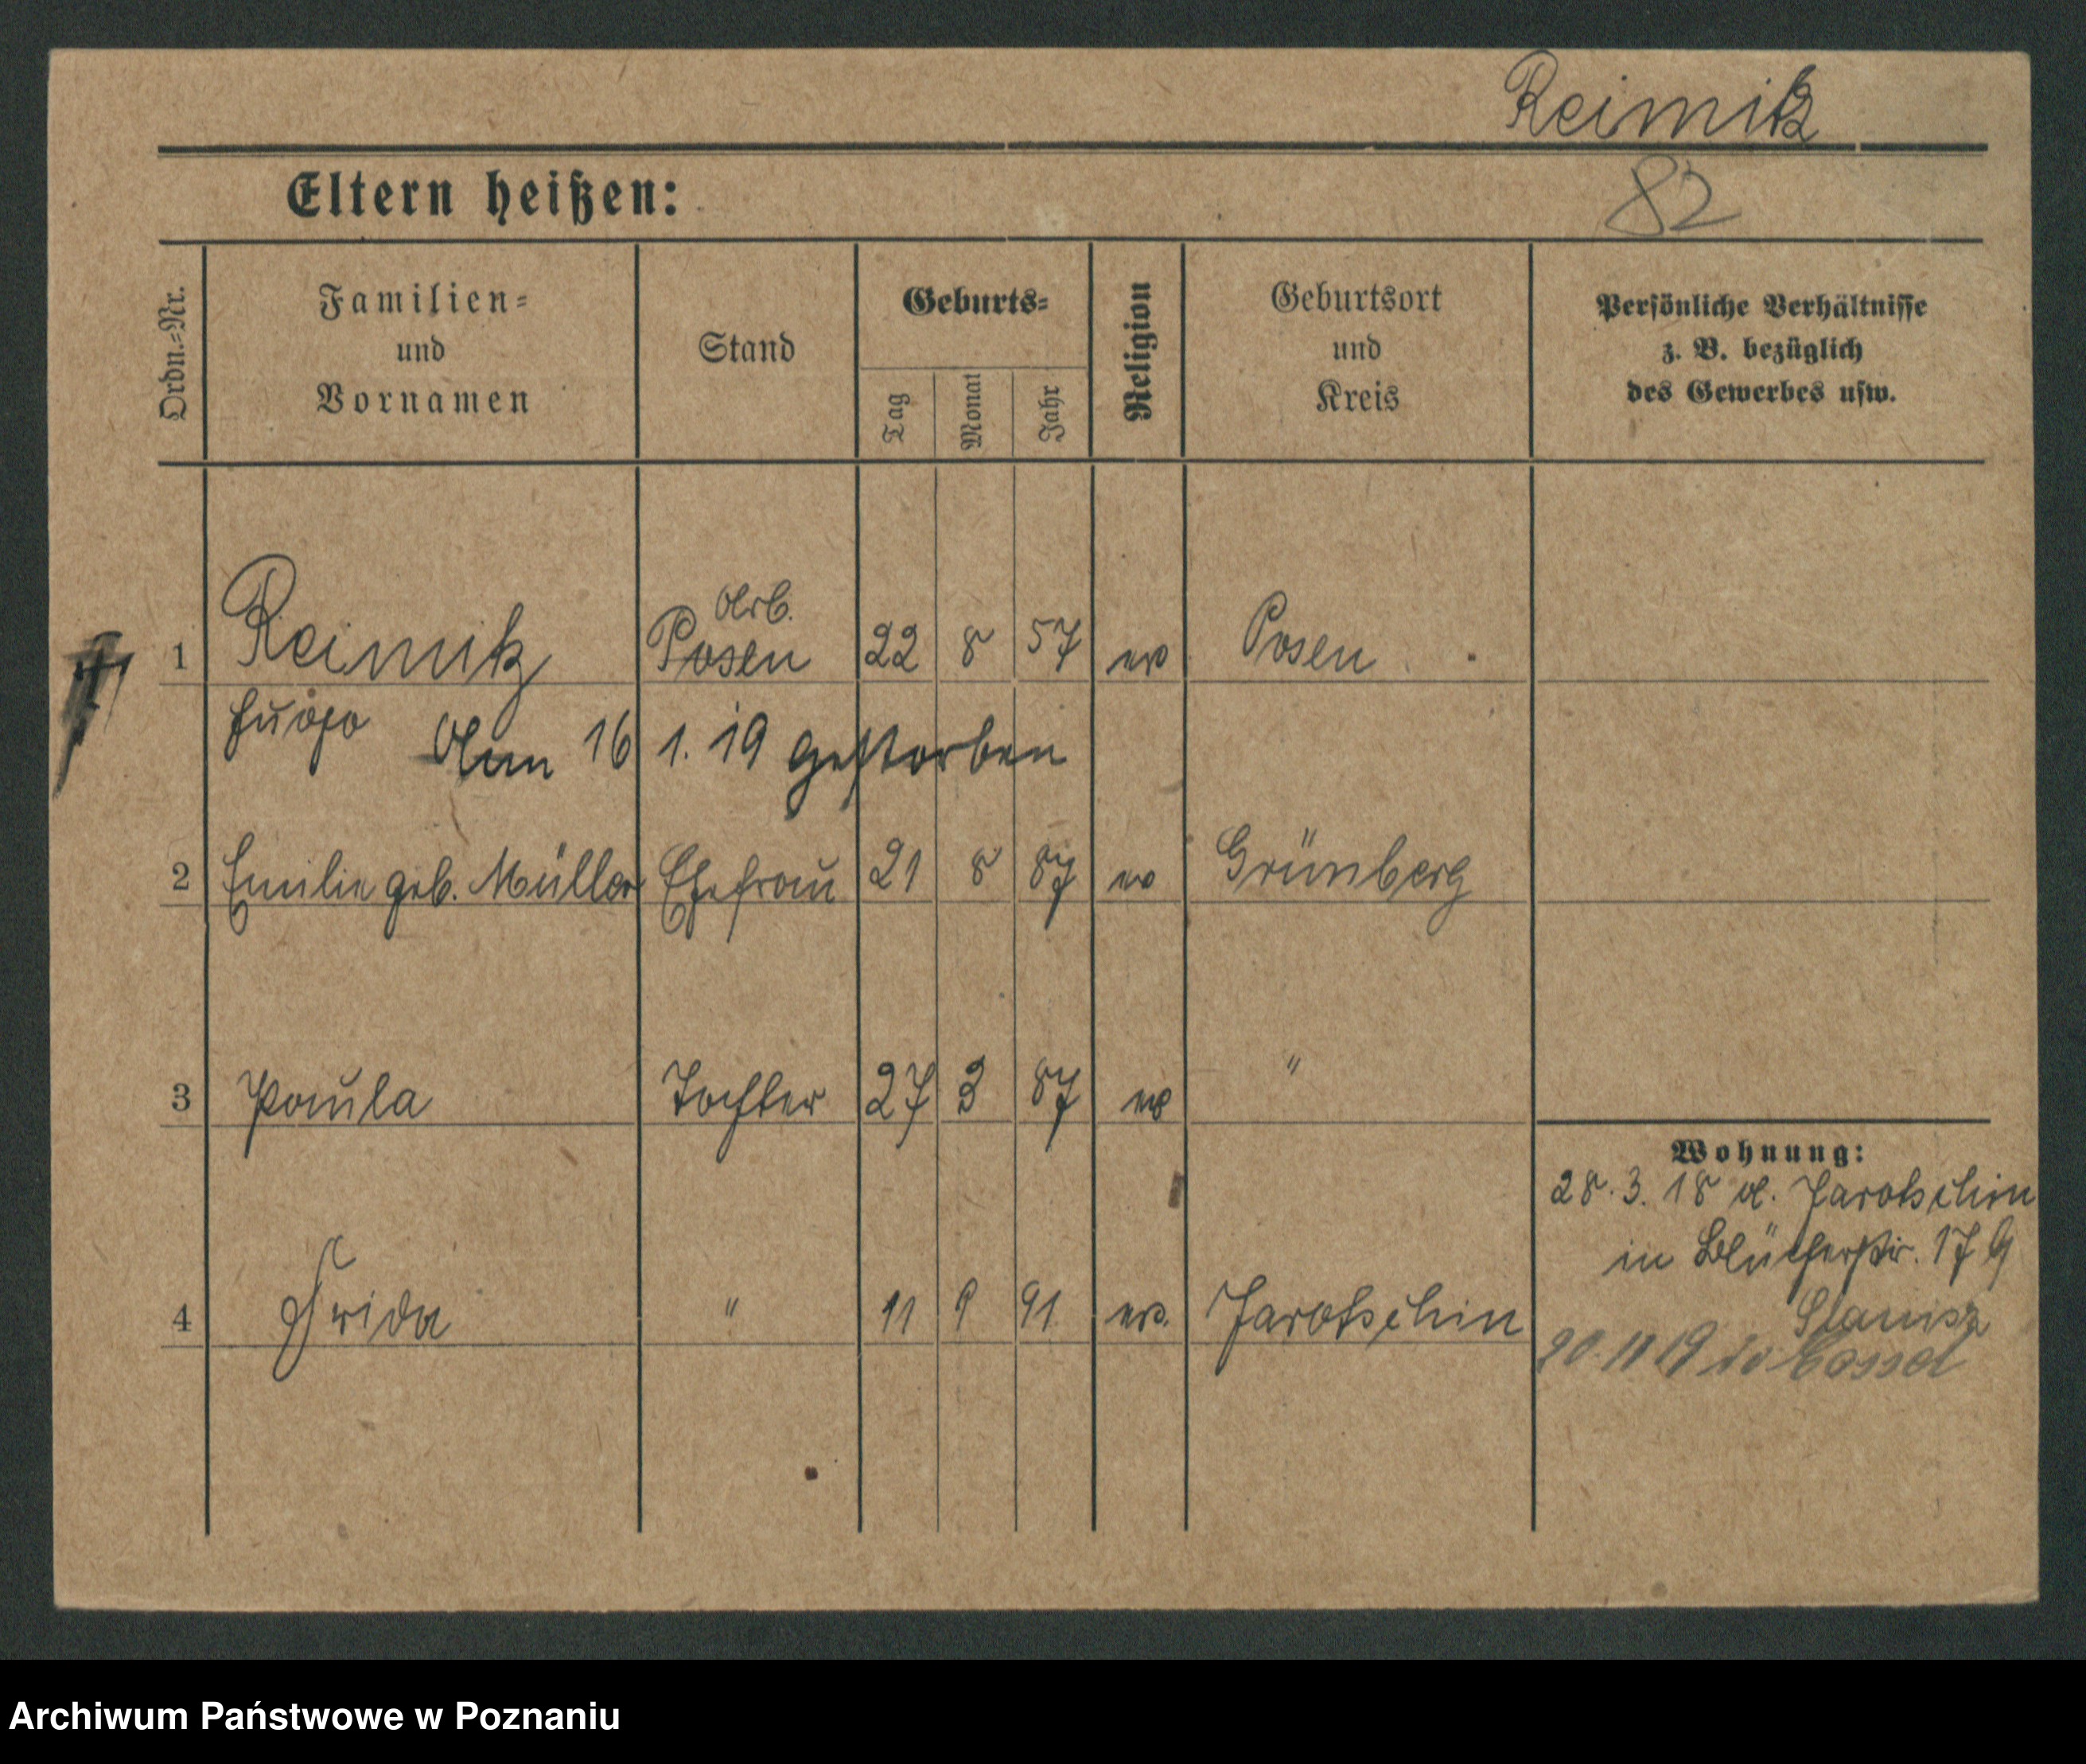 Reimitz
Eltern heißen:
82
Ordn.=Nr.
Familien=
und
Vornamen
Stand
Geburts=
Tag
Monat
Jahr
Religion
Geburtsort
und
Kreis
Persönliche Verhältnisse
z. B. bezüglich
des Gewerbes usw.
Arb.
1 Reimitz Posen 22 8 57 ev Posen
Hugo Am 16 1. 19 gestorben
2 Emilie geb. Müller Ehefrau 21 8 87 ev Grünberg
3 Paula Tochter 27 3 87 ev "
4 Frida " 11 9 91 ev. Jarotschin
Wohnung:
28. 3. 18 v. Jarotschin
in Blücherstr. 17
20. 11 19 Cassel
Archiwum Państwowe w Poznaniu